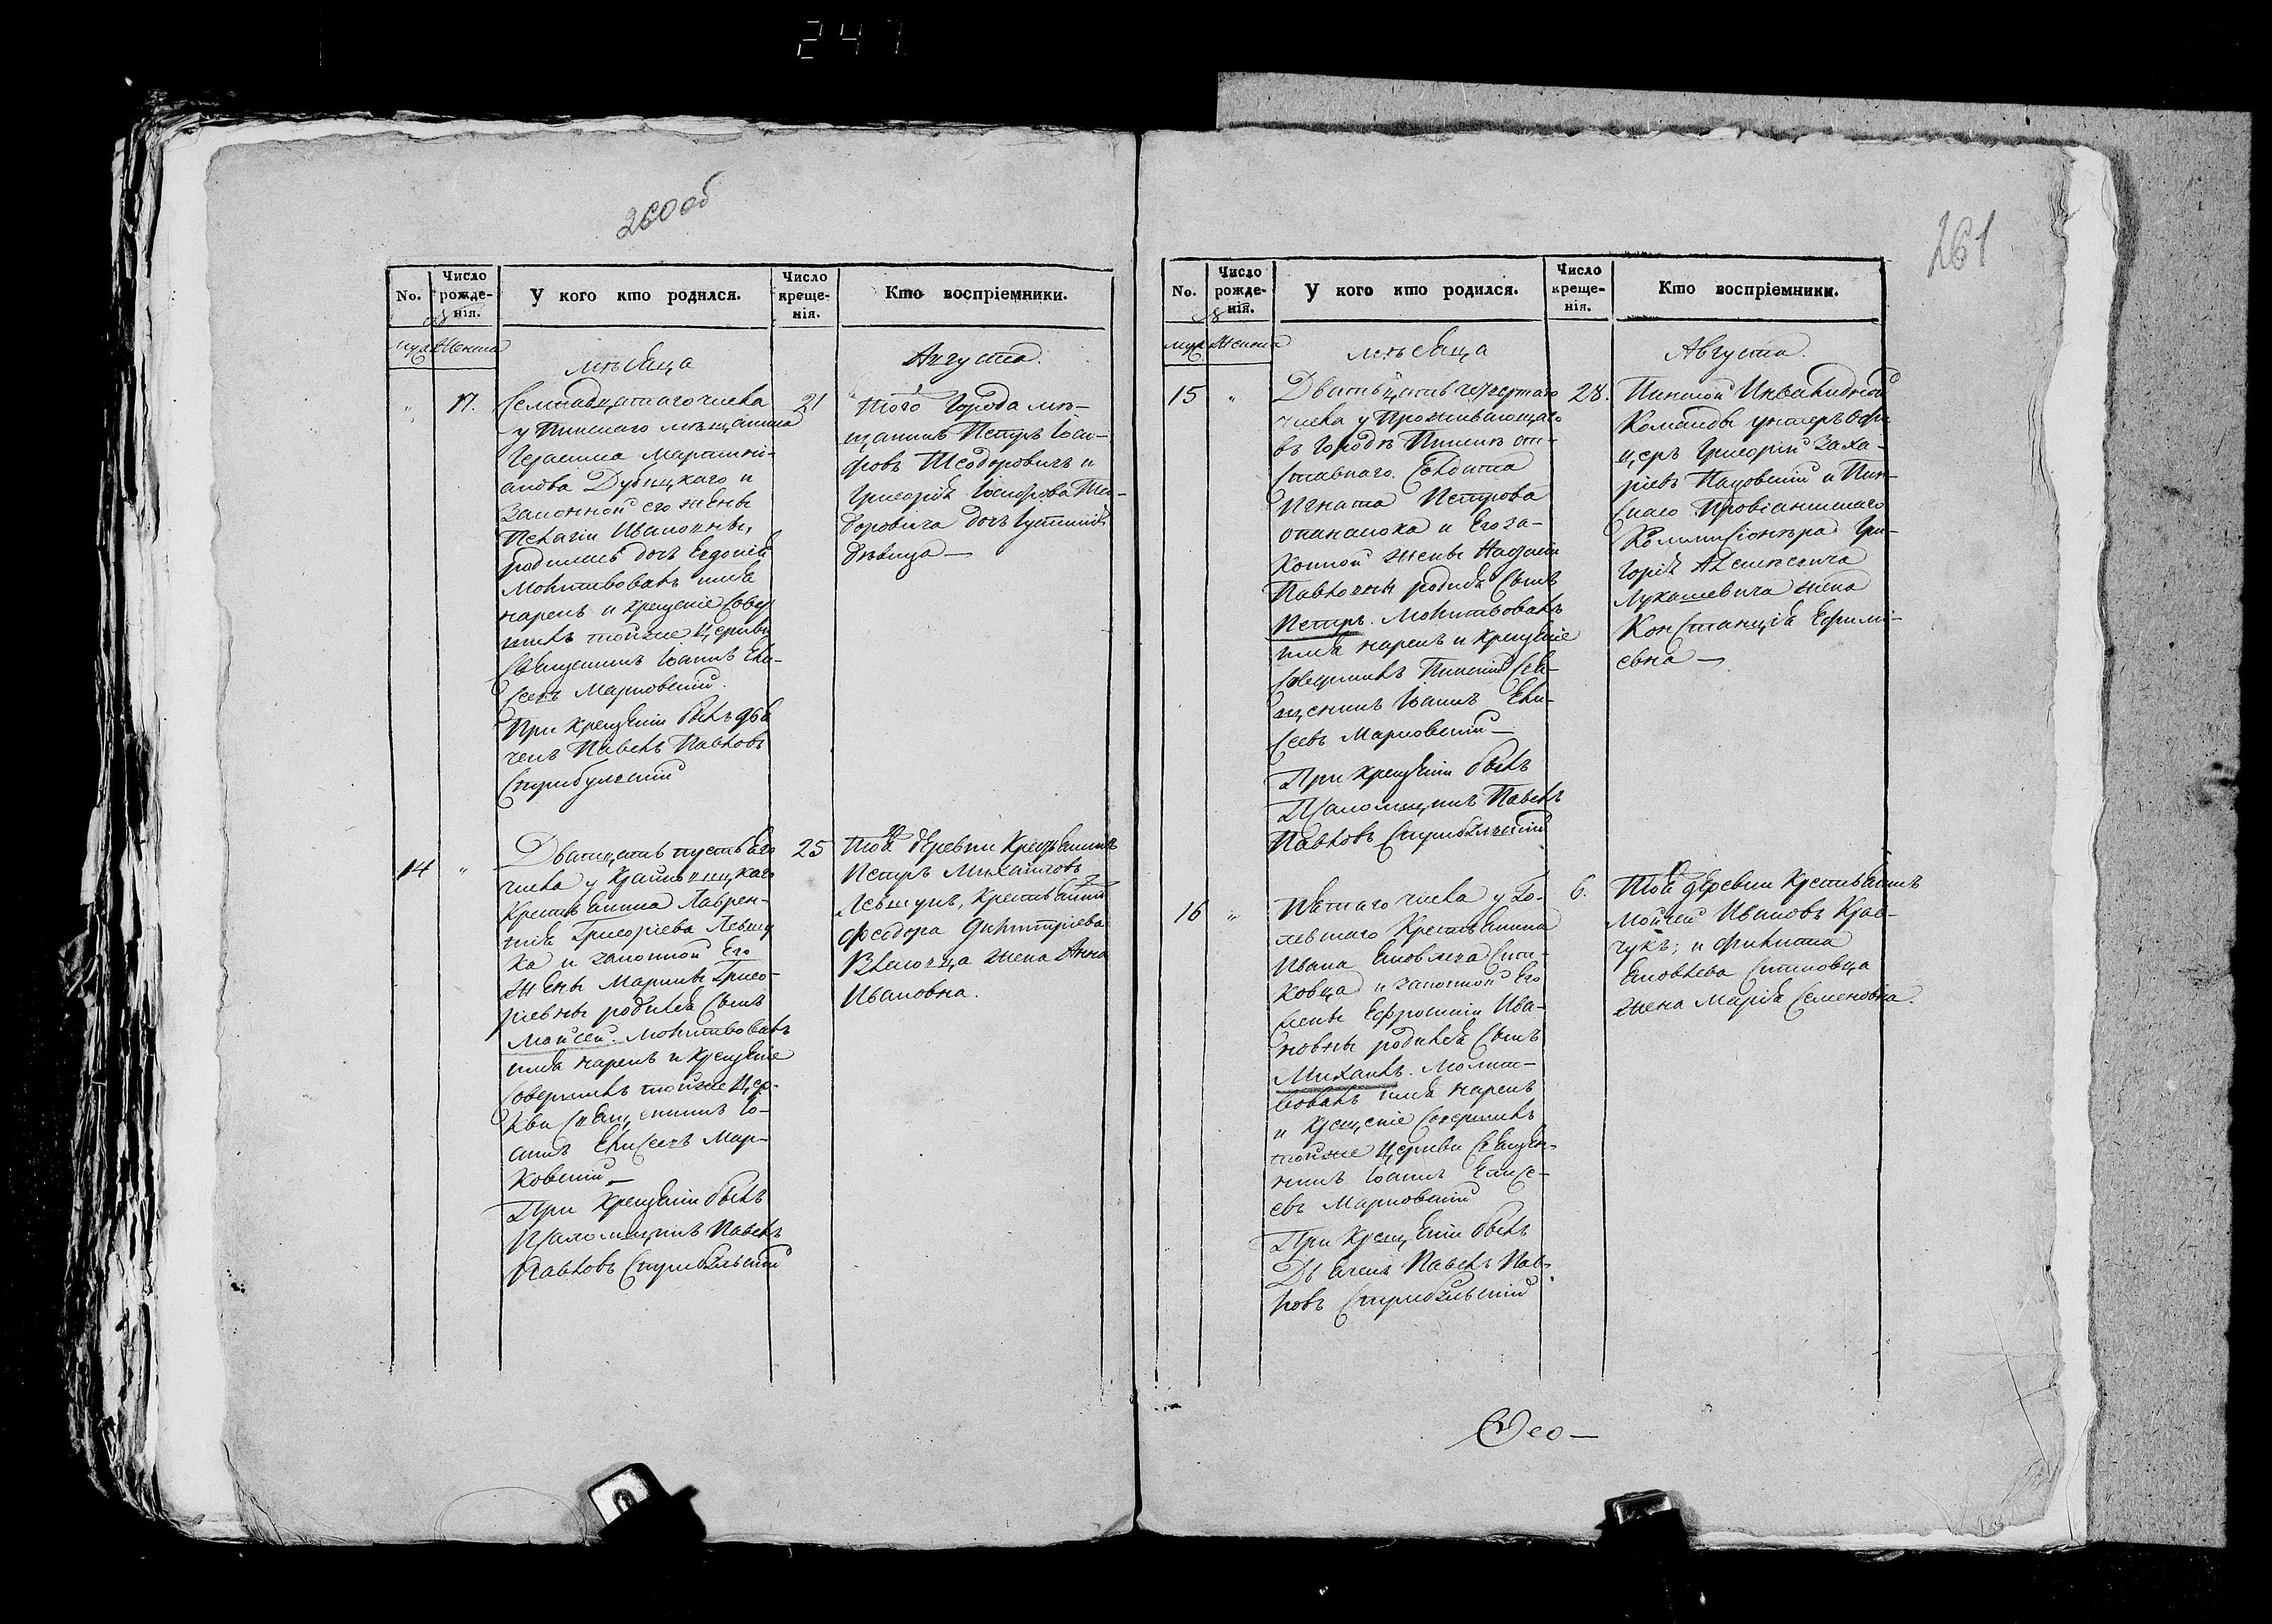 247
260 об
No.
Число рожденія.
У кого кто родился.
Число крещенія.
Кто воспріемники.
муж. Женска
мѣсяца
Августа.
" 17. 21
Семнадцатаго числа
у Пинскаго мѣщанина
Герасима Мартини-
анова Дубицкаго и
Законной его жены
Пелагіи Ивановны,
родилась дочь Евдокія
Молитвовалъ имя
нарекъ и крещеніе совер
шилъ тойже церкви
Священникъ Іоаннъ Ели-
сеевъ Марковскій.
При крещеніи былъ дья
чекъ Павелъ Павловъ
Стрибульскій
того Города мѣ-
щанинъ Петръ Іоси-
фовъ Теодоровичъ и
Григорія Іосифова Тео-
доровича дочь Іустинія
дѣвица —
14 " 25
Двадцать
числа у
Крестьянина Лаврен-
тія Григоріева Левшу
ка и законной Его
Жены Марины Григо-
ріевны родился Сынъ
Мойсей. Молитвовалъ
имя нарекъ и Крещеніе
совершилъ тойже Цер-
кви Священникъ Іо-
аннъ Елисеевъ Мар-
ковскій —
При Крещеніи былъ
Псаломщикъ Павелъ
Павловъ Стрибульскій
Той деревни Крестьянинъ
Петръ Михайловъ
Левшукъ, Крестьянина
Феодора Димитріева
жена Анна
Ивановна.
261
No.
Число рожденія.
У кого кто родился.
Число крещенія.
Кто воспріемники.
муж. Женска
мѣсяца
Августа.
15 " 28.
Двадцать четвертаго
числа у Проживающаго
въ Городѣ Пинскѣ от-
ставнаго Солдата
Игната Петрова
Опанасюка и Его за-
конной жены Настасіи
Павловны родился Сынъ
Петръ. Молитвовалъ
имя нарекъ и крещеніе
совершилъ Пинскій Свя-
щенникъ Іоаннъ Ели-
сеевъ Марковскій —
При Крещеніи былъ
Псаломщикъ Павелъ
Павловъ Стрибульскій
Пинской Инвалидной
Команды унтеръ Офи
церъ Григорій Заха-
ріевъ Пацовскій и Пин-
скаго Провіантскаго
Коммисіонера Гри-
горія Алексѣевича
Лукашевича жена
Констанція Ефимі-
евна —
16 " 6.
Пятаго числа у Го-
левскаго Крестьянина
Ивана Яковлева Сити-
ковца и законной Его
жены Ефросиніи Ива-
новны родился Сынъ
Михаилъ. Молит-
вовалъ имя нарекъ
и Крещеніе Совершилъ
тойже Церкви Священ-
никъ Іоаннъ Елисе-
евъ Марковскій
При Крещеніи былъ
Дьячекъ Павелъ Пав-
ловъ Стрибульскій
Той деревни Крестьянинъ
Мойсей Ивановъ Крав-
чукъ; и Филипа
Яковлева Ситиковца
жена Марія Семеновна.
Ѳео —